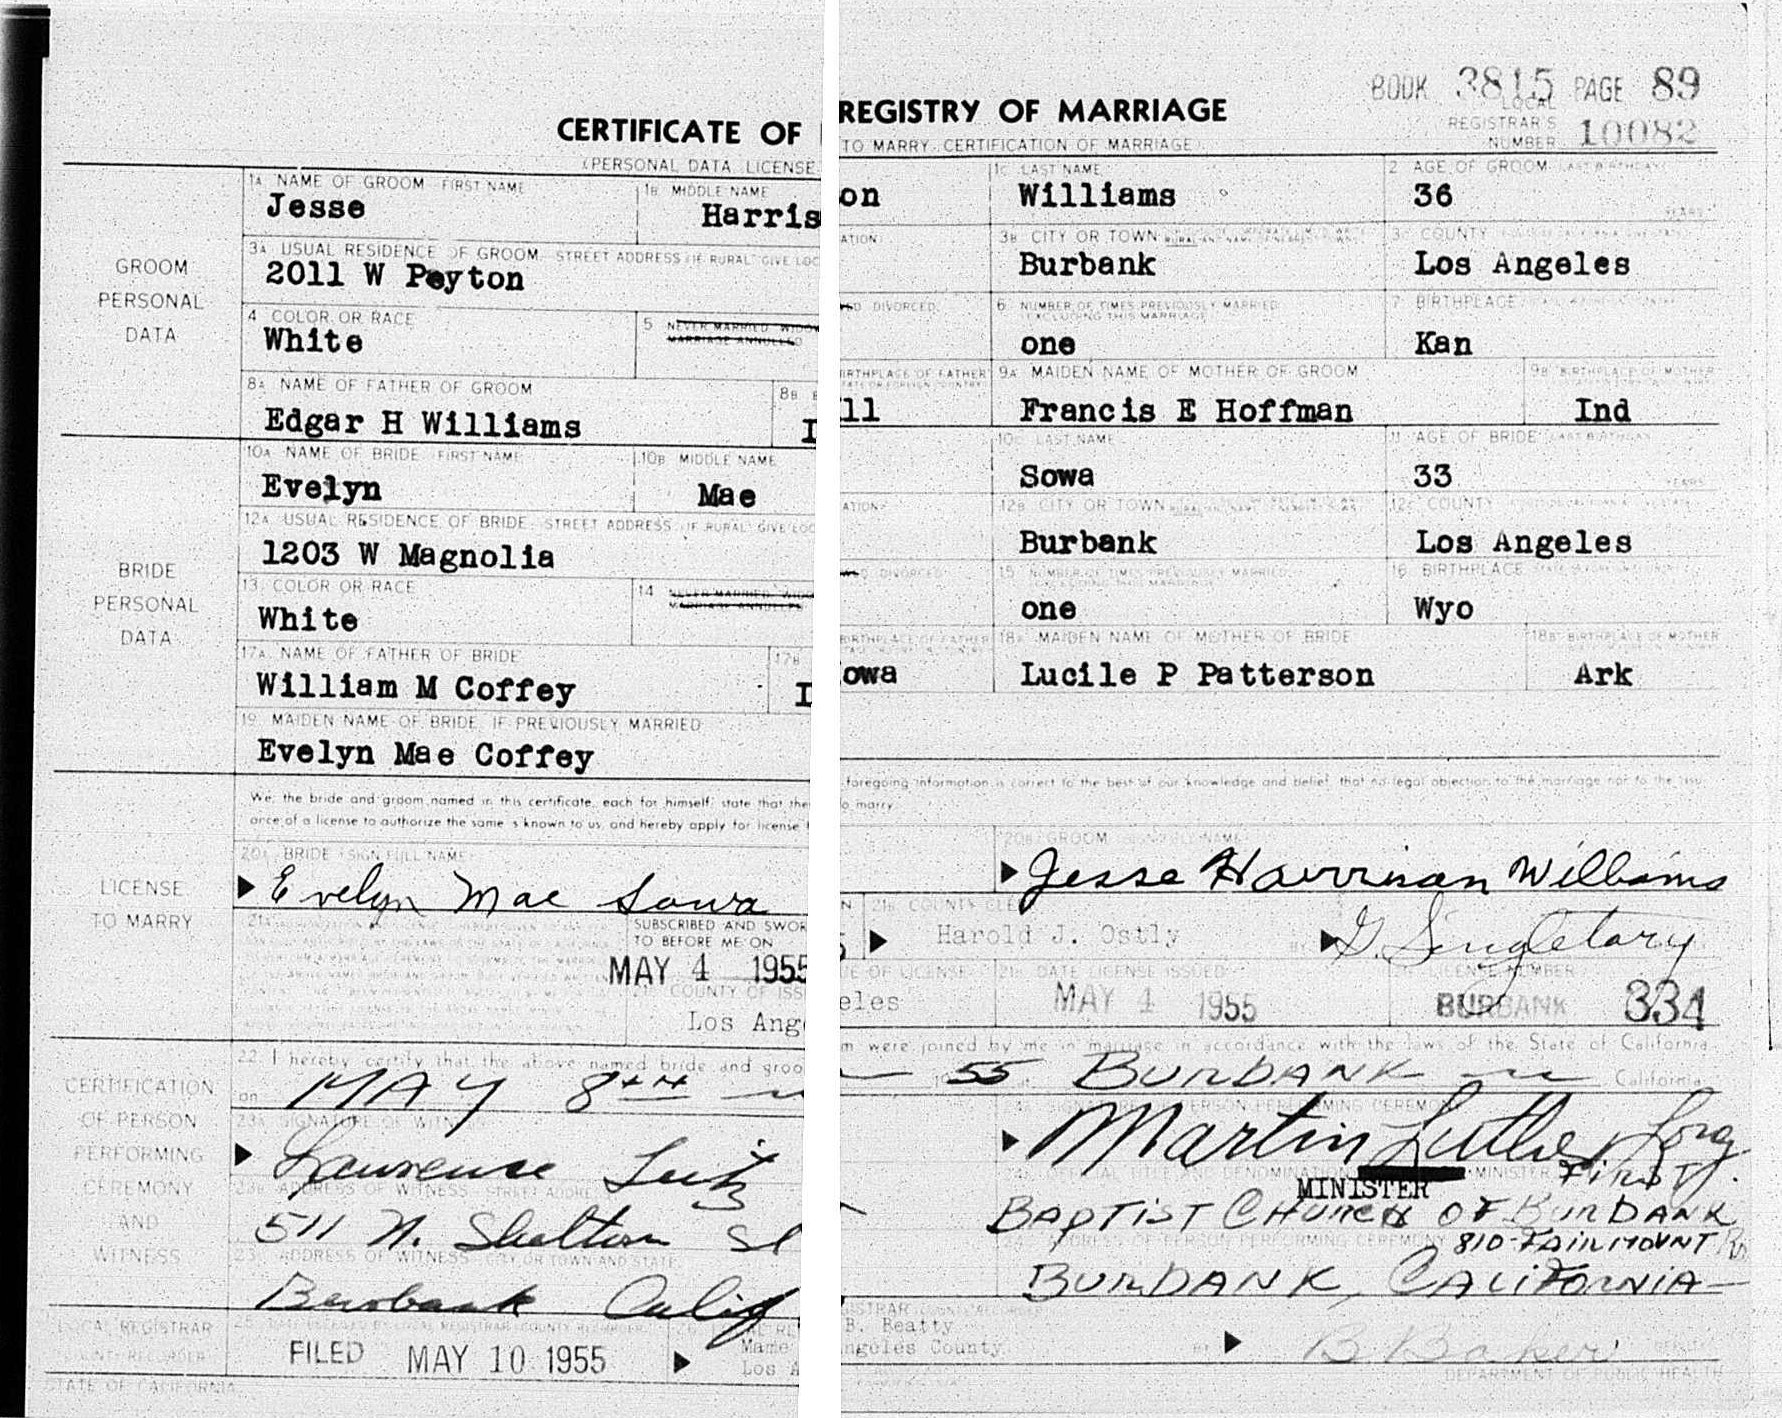 BOOK 3815 PAGE 89
CERTIFICATE OF REGISTRY OF MARRIAGE
LOCAL REGISTRAR'S NUMBER 10082
(PERSONAL DATA LICENSE TO MARRY CERTIFICATION OF MARRIAGE)
GROOM PERSONAL DATA
1A NAME OF GROOM FIRST NAME 1B MIDDLE NAME 1C LAST NAME 2 AGE OF GROOM
Jesse Harris on Williams 36 YEARS
3A USUAL RESIDENCE OF GROOM STREET ADDRESS (IF RURAL GIVE LOC ATION) 3B CITY OR TOWN 3C COUNTY
2011 W Peyton Burbank Los Angeles
4 COLOR OR RACE 5 NEVER MARRIED WIDOW ED DIVORCED 6 NUMBER OF TIMES PREVIOUSLY MARRIED 7 BIRTHPLACE
MARRIAGE ANNULLED EXCLUDING THIS MARRIAGE
White one Kan
8A NAME OF FATHER OF GROOM 8B BIRTHPLACE OF FATHER 9A MAIDEN NAME OF MOTHER OF GROOM 9B BIRTHPLACE OF MOTHER
Edgar H Williams I ll Francis E Hoffman Ind
BRIDE PERSONAL DATA
10A NAME OF BRIDE FIRST NAME 10B MIDDLE NAME 10C LAST NAME 11 AGE OF BRIDE
Evelyn Mae Sowa 33 YEARS
12A USUAL RESIDENCE OF BRIDE STREET ADDRESS (IF RURAL GIVE LOC ATION) 12B CITY OR TOWN 12C COUNTY
1203 W Magnolia Burbank Los Angeles
13 COLOR OR RACE 14 NEVER MARRIED DIVORCED 15 NUMBER OF TIMES PREVIOUSLY MARRIED 16 BIRTHPLACE
White one Wyo
17A NAME OF FATHER OF BRIDE 17B BIRTHPLACE OF FATHER 18A MAIDEN NAME OF MOTHER OF BRIDE 18B BIRTHPLACE OF MOTHER
William M Coffey I owa Lucile P Patterson Ark
19 MAIDEN NAME OF BRIDE IF PREVIOUSLY MARRIED
Evelyn Mae Coffey
We, the bride and groom named in this certificate, each for himself, state that the foregoing information is correct to the best of our knowledge and belief, that no legal objection to the marriage nor to the issu
ance of a license to authorize the same is known to us, and hereby apply for license to marry
LICENSE TO MARRY
20A BRIDE (SIGN FULL NAME) 20B GROOM
Evelyn Mae Sowa Jesse Harrison Williams
SUBSCRIBED AND SWOR N TO BEFORE ME ON 21C COUNTY CLERK
MAY 4 1955 Harold J. Ostly BY G. Singletary
COUNTY OF ISS UE OF LICENSE DATE LICENSE ISSUED LICENSE NUMBER
Los Ang eles MAY 4 1955 BURBANK 334
CERTIFICATION OF PERSON PERFORMING CEREMONY AND WITNESS
22 I hereby certify that the above named bride and groo m were joined by me in marriage in accordance with the laws of the State of California
on MAY 8TH 1955 BURBANK California
23A SIGNATURE OF WITNESS
Lawrence Martin Luther Long
23B ADDRESS OF WITNESS STREET ADDRESS
MINISTER FIRST
511 N. Shelton St BAPTIST CHURCH OF BURBANK
23C ADDRESS OF WITNESS CITY OR TOWN AND STATE ADDRESS OF PERSON PERFORMING CEREMONY 810-FAIRMOUNT Rd
Burbank Calif BURBANK, CALIFORNIA
LOCAL REGISTRAR
COUNTY RECORDER
FILED MAY 10 1955 Mame B. Beatty
Los A ngeles County BY B. Baker DEPUTY
STATE OF CALIFORNIA DEPARTMENT OF PUBLIC HEALTH